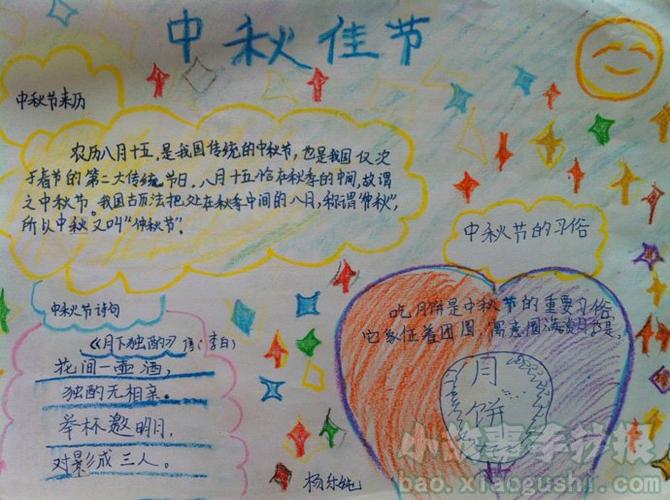 中秋佳节
中秋节来历
农历八月十五，是我国传统的中秋节，也是我国仅次
于春节的第二大传统节日。八月十五恰在秋季的中间，故谓
之中秋节。我国古历法把处在秋季中间的八月，称谓“仲秋”，
所以中秋又叫“仲秋节”。
中秋节的习俗
吃月饼是中秋节的重要习俗
它象征着团圆，寓意圆满
月
饼
中秋节诗句
《月下独酌》 唐（李白）
花间一壶酒，
独酌无相亲。
举杯邀明月，
对影成三人。
小故事手抄报
bao.xiaogushi.com